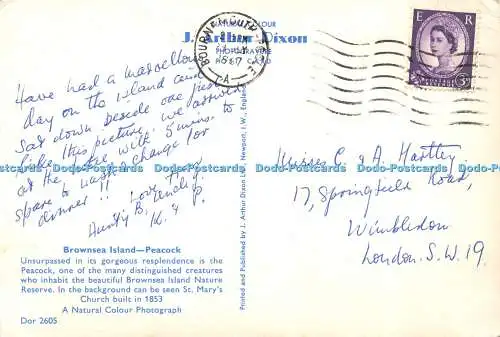 NATURAL COLOUR
J. Arthur Dixon
PHOTOGRAPHIC
POST CARD
BOURNEMOUTH
E R
3D
Have had a marvellous
day on the island and
Sat down beside one just
like this picture, we arrived
at the with 5 mins. to
spare to wash & change for
dinner !! Love from
Aunty B, Uncle J.
K. & P.
Misses C & A Hartley,
17, Springfield Road,
Wimbledon
London. S.W.19.
Brownsea Island—Peacock
Unsurpassed in its gorgeous resplendence is the
Peacock, one of the many distinguished creatures
who inhabit the beautiful Brownsea Island Nature
Reserve. In the background can be seen St. Mary's
Church built in 1853
A Natural Colour Photograph
Dor 2605
Printed and Published by J. Arthur Dixon Ltd., Newport, I.W., England
Dodo-Postcards Dodo-Postcards Dodo-Postcards Dodo-Postcards